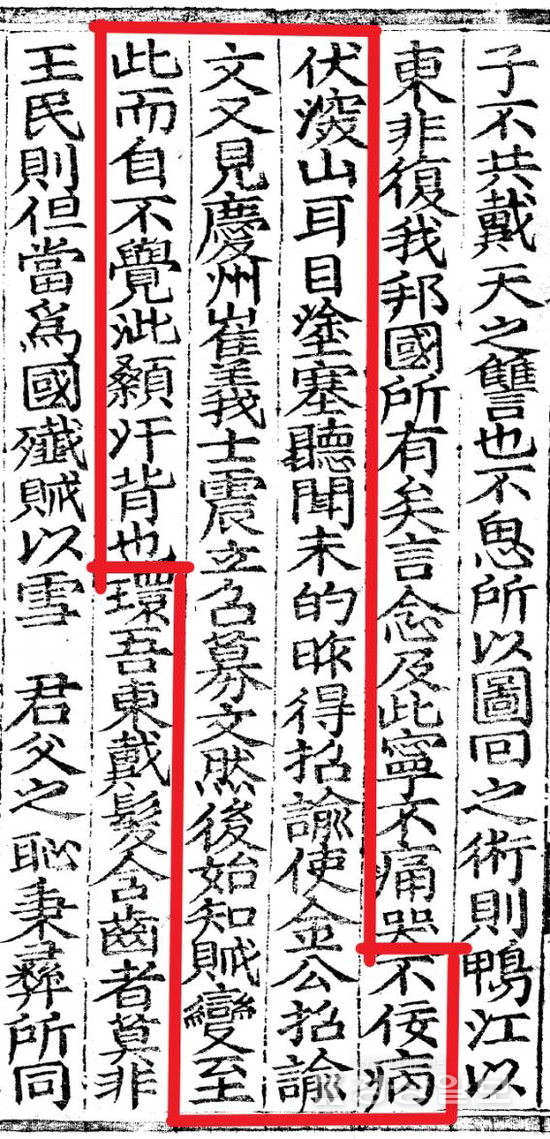 子不共戴天之讐也不思所以圖回之術則鴨江以
東非復我邦國所有矣言念及此寧不痛哭不佞病
伏深山耳目塗塞聽聞未的昨得招諭使金公招諭
文又見慶州崔義士震立召募文然後始知賊變至
此而自不覺泚顙汗背也環吾東戴髮含齒者莫非
王民則但當爲國殲賊以雪 君父之恥秉彛所同